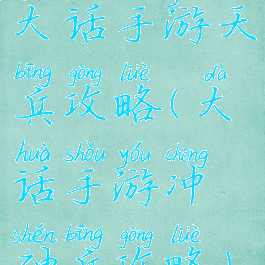 大话手游天
bīng gōng lüè dà
兵攻略(大
huà shǒu yóu chōng
话手游冲
shén bīng gōng lüè
神兵攻略)